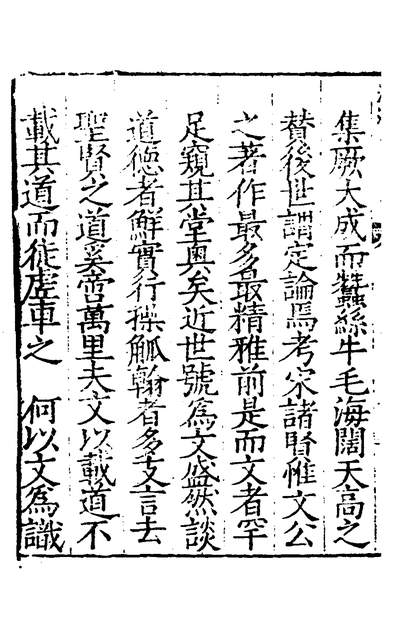 集厥大成而蠶絲牛毛海闊天高之
替後世謂定論焉考宋諸賢惟文公
之著作最多最精雅前是而文者罕
足窺其堂奧矣近世號為文盛然談
道德者鮮實行操觚翰者多支言去
聖賢之道奚啻萬里夫文以載道不
載其道而徒虛車之 何以文為識